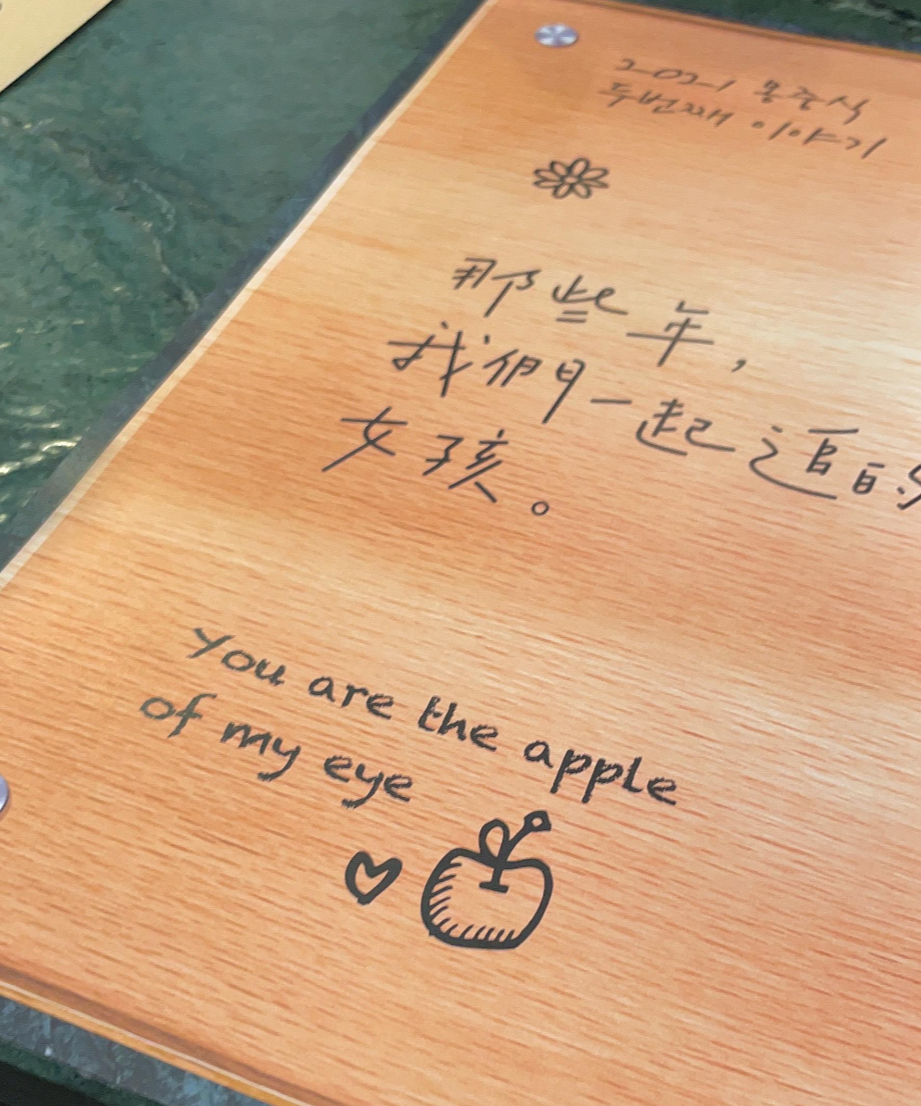 2021 봄중식
두번째 이야기
那些年，
我們一起追的
女孩。
You are the apple
of my eye